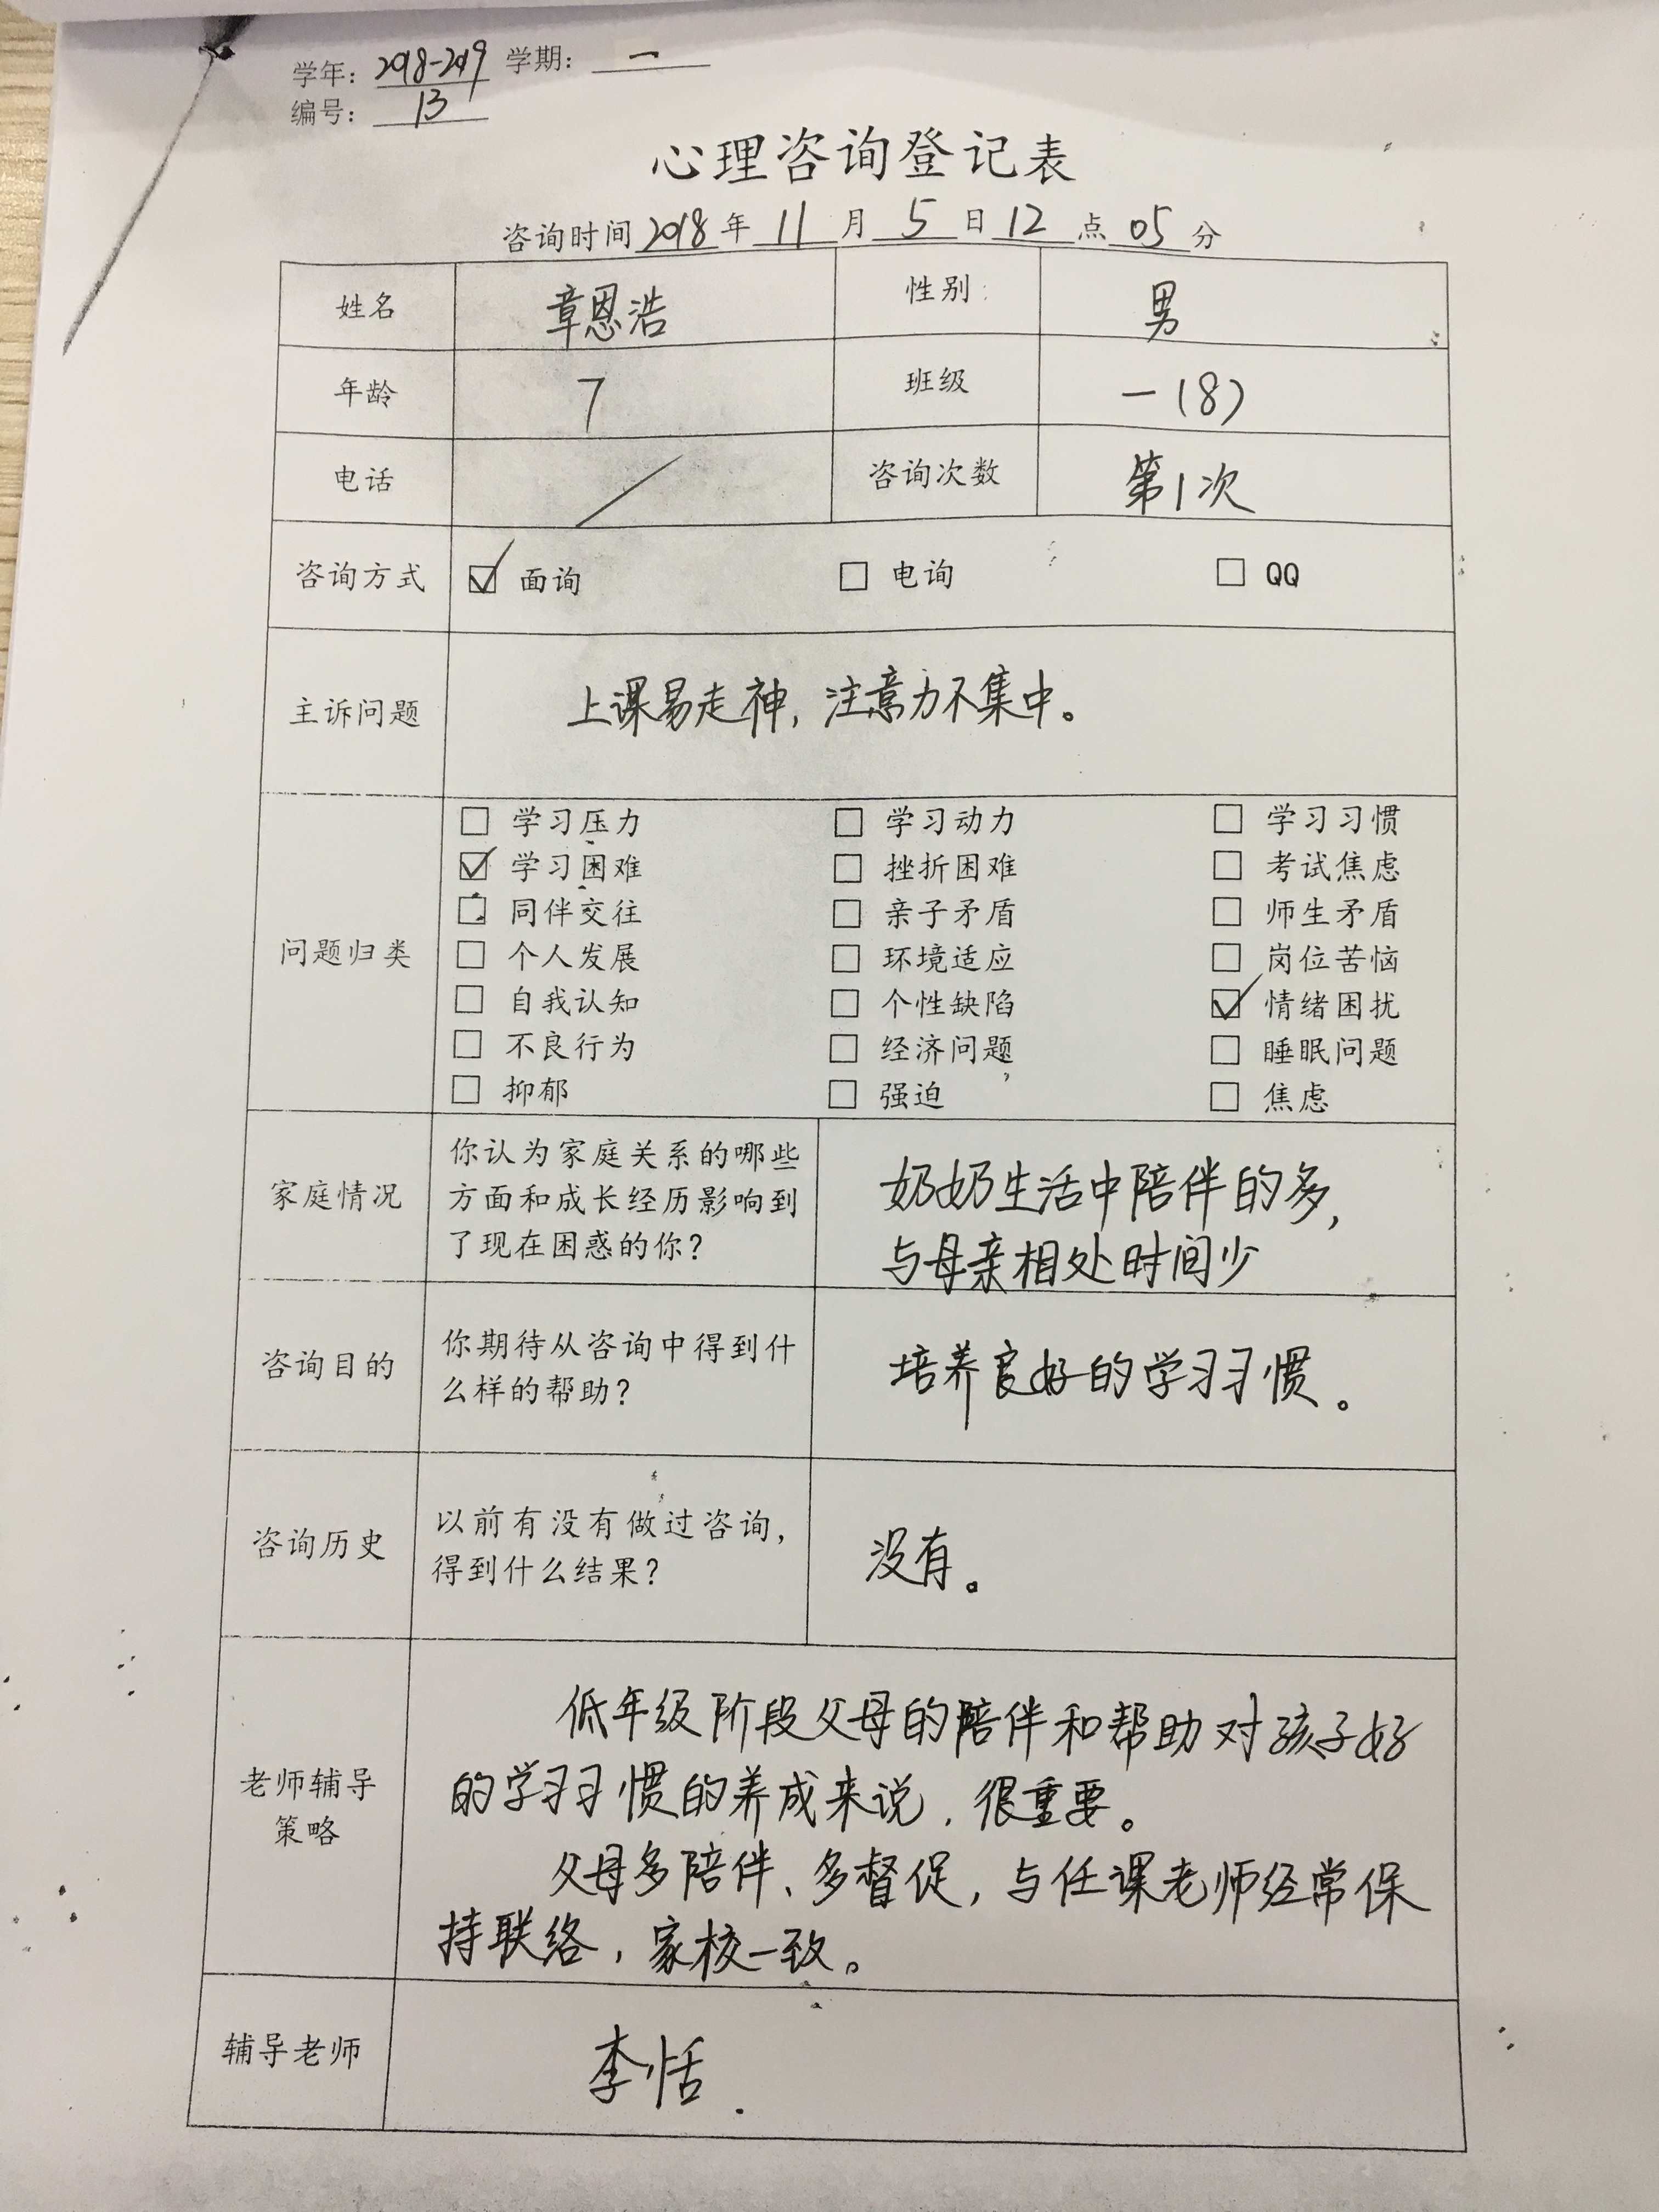 学年：2018-2019 学期：一
编号：13
心理咨询登记表
咨询时间2018年11月5日12点05分
姓名 章恩浩 性别 男
年龄 7 班级 一(8)
电话 / 咨询次数 第1次
咨询方式 ☑ 面询 □ 电询 □ QQ
主诉问题 上课易走神，注意力不集中。
问题归类
□ 学习压力 □ 学习动力 □ 学习习惯
☑ 学习困难 □ 挫折困难 □ 考试焦虑
□ 同伴交往 □ 亲子矛盾 □ 师生矛盾
□ 个人发展 □ 环境适应 □ 岗位苦恼
□ 自我认知 □ 个性缺陷 ☑ 情绪困扰
□ 不良行为 □ 经济问题 □ 睡眠问题
□ 抑郁 □ 强迫 □ 焦虑
家庭情况
你认为家庭关系的哪些
方面和成长经历影响到
了现在困惑的你？
奶奶生活中陪伴的多，
与母亲相处时间少
咨询目的
你期待从咨询中得到什
么样的帮助？
培养良好的学习习惯。
咨询历史
以前有没有做过咨询，
得到什么结果？
没有。
老师辅导
策略
低年级阶段父母的陪伴和帮助对孩子好
的学习习惯的养成来说，很重要。
父母多陪伴、多督促，与任课老师经常保
持联络，家校一致。
辅导老师 李恬.